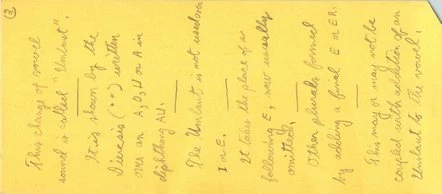 ②
This change of vowel
sound is called "Umlaut".
It is shown by the
Dieresis (••) written
over an A, O, U or A in
diphthong AU.
The Umlaut is not used over
I or E.
It takes the place of a
following E, now usually
omitted.
Other plurals formed
by adding a final E or ER.
This may or may not be
coupled with addition of an
Umlaut to the vowel.